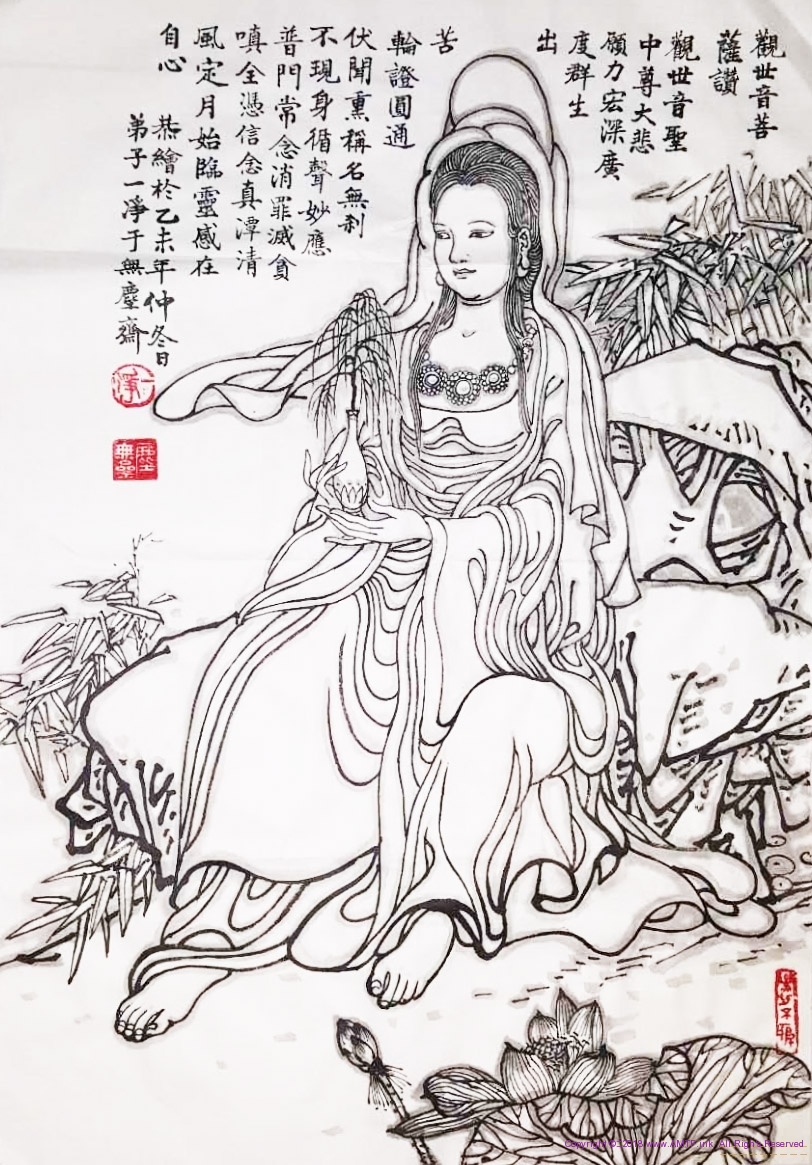 觀世音菩
薩讚
觀世音聖
中尊大悲
願力宏深廣
度群生
出
苦
輪證圓通
伏聞熏稱名無刹
不現身循聲妙應
普門常念消罪滅貪
嗔全憑信念真潭清
風定月始臨靈感在
自心
恭繪於乙未年仲冬日
弟子一凈于無塵齋
一凈
Copyright ©: 2018 www.AMTF.ink. All Rights Reserved.